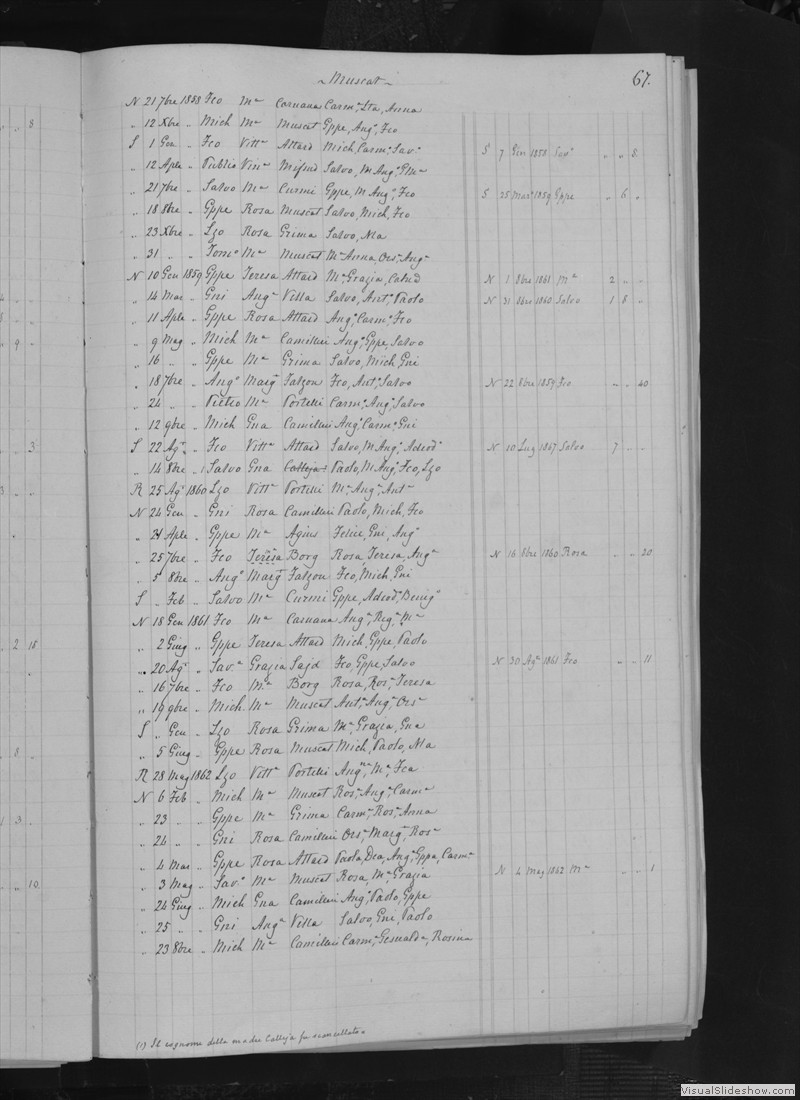 Muscat
67.
N 21 7bre 1858 Fco Ma Caruana Carma, Lta, Anna
„ 12 Xbre „ Mich Ma Muscat Gppe, Anga, Fco
S 1 Gen „ Fco Vitta Attard Mich, Carmo, Savo
S 7 Gin 1858 „ „ 8
„ 12 Aple „ Publio Vina Mifsud Salvo, M Anga
„ 21 7bre „ Salvo Ma Curmi Gppe, M Anga, Fco
S 25 Mar 1859 Gppe „ 6 „
„ 18 8bre „ Gppe Rosa Muscat Salvo, Mich, Fco
„ 23 Xbre „ Lzo Rosa Grima Salvo, Ma
„ 31 „ „ Tomo Ma Muscat Ma Anna, Orsa, Anga
N 10 Gen 1859 Gppe Teresa Attard Ma Grazia
N 1 8bre 1861 Ma 2 „ „
„ 14 Mar „ Gni Anga Vella Salvo, Anto, Paolo
N 31 8bre 1860 Salvo 1 8 „
„ 11 Aple „ Gppe Rosa Attard Ango, Carmo, Fco
„ 9 Mag „ Mich Ma Camilleri Ango, Gppe, Salvo
„ 16 „ „ Gppe Ma Grima Salvo, Mich, Gni
„ 18 7bre „ Ango Marga Falzon Fco, Anto, Salvo
N 22 8bre 1859 Fco „ „ 40
„ 24 „ „ Pietro Ma Portelli Carmo, Ango, Salvo
„ 12 9bre „ Mich Gna Camilleri Ango, Carmo, Gni
S 22 Ago „ Fco Vitta Attard Salvo, M Anga, Adeoda
N 10 Lug 1867 Salvo 7 „ „
„ 14 8bre „ 1 Salvo Gna Calleja Paolo, M Anga, Fco, Lzo
R 25 Ago 1860 Lzo Vitta Portelli Ma, Anga, Anta
N 24 Gen „ Gni Rosa Camilleri Paolo, Mich, Fco
„ 21 Aple „ Gppe Ma Agius Felice, Gni, Ango
„ 25 7bre „ Fco Teresa Borg Rosa, Teresa, Anga
N 16 8bre 1860 Rosa „ „ 20
„ 5 8bre „ Ango Marga Falzon Fco, Mich, Gni
S „ Feb „ Salvo Ma Curmi Gppe, Adeodo, Benigo
N 18 Gen 1861 Fco Ma Caruana Anga, Rega, Ma
„ 2 Giug „ Gppe Teresa Attard Mich, Gppe, Paolo
„ 20 Ago „ Savo Grazia Sajd Fco, Gppe, Salvo
N 30 Ago 1861 Fco „ „ 11
„ 16 7bre „ Fco Ma Borg Rosa, Rosa, Teresa
„ 19 9bre „ Mich Ma Muscat Anta, Anga, Orsa
S „ Gen „ Lzo Rosa Grima Ma, Grazia, Gna
„ 5 Giug „ Gppe Rosa Muscat Mich, Paolo, Ma
R 28 Mag 1862 Lzo Vitta Portelli Anga, Ma, Fca
N 6 Feb „ Mich Ma Muscat Rosa, Anga, Carma
„ 23 „ „ Gppe Ma Grima Carma, Rosa, Anna
„ 24 „ „ Gni Rosa Camilleri Orsa, Marga, Rosa
„ 4 Mar „ Gppe Rosa Attard Paola, Dea, Anga, Gppa, Carma
„ 3 Mag „ Savo Ma Muscat Rosa, Ma Grazia
N 4 Mag 1862 Ma „ „ 1
„ 24 Giug „ Mich Gna Camilleri Ango, Paolo, Gppe
„ 25 „ „ Gni Anga Vella Salvo, Gni, Paolo
„ 23 8bre „ Mich Ma Camilleri Carma, Gesualda, Rosina
(1) Il cognome della madre Calleja fu scancellato
VisualSlideshow.com